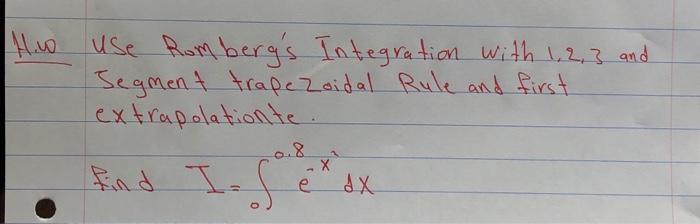 H.w Use Romberg's Integration with 1,2,3 and
Segment trapezoidal Rule and first
extrapolationte.
find I = ∫₀^0.8 e^-x² dx